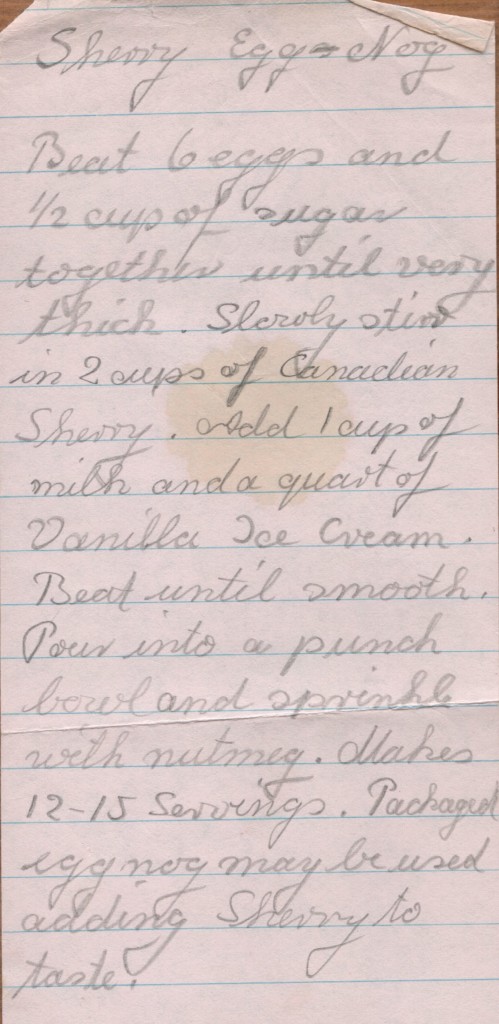 Sherry Egg-Nog
Beat 6 eggs and
1/2 cup of sugar
together until very
thick. Slowly stir
in 2 cups of Canadian
Sherry. Add 1 cup of
milk and a quart of
Vanilla Ice Cream.
Beat until smooth.
Pour into a punch
bowl and sprinkle
with nutmeg. Makes
12-15 Servings. Packaged
egg nog may be used
adding Sherry to
taste.